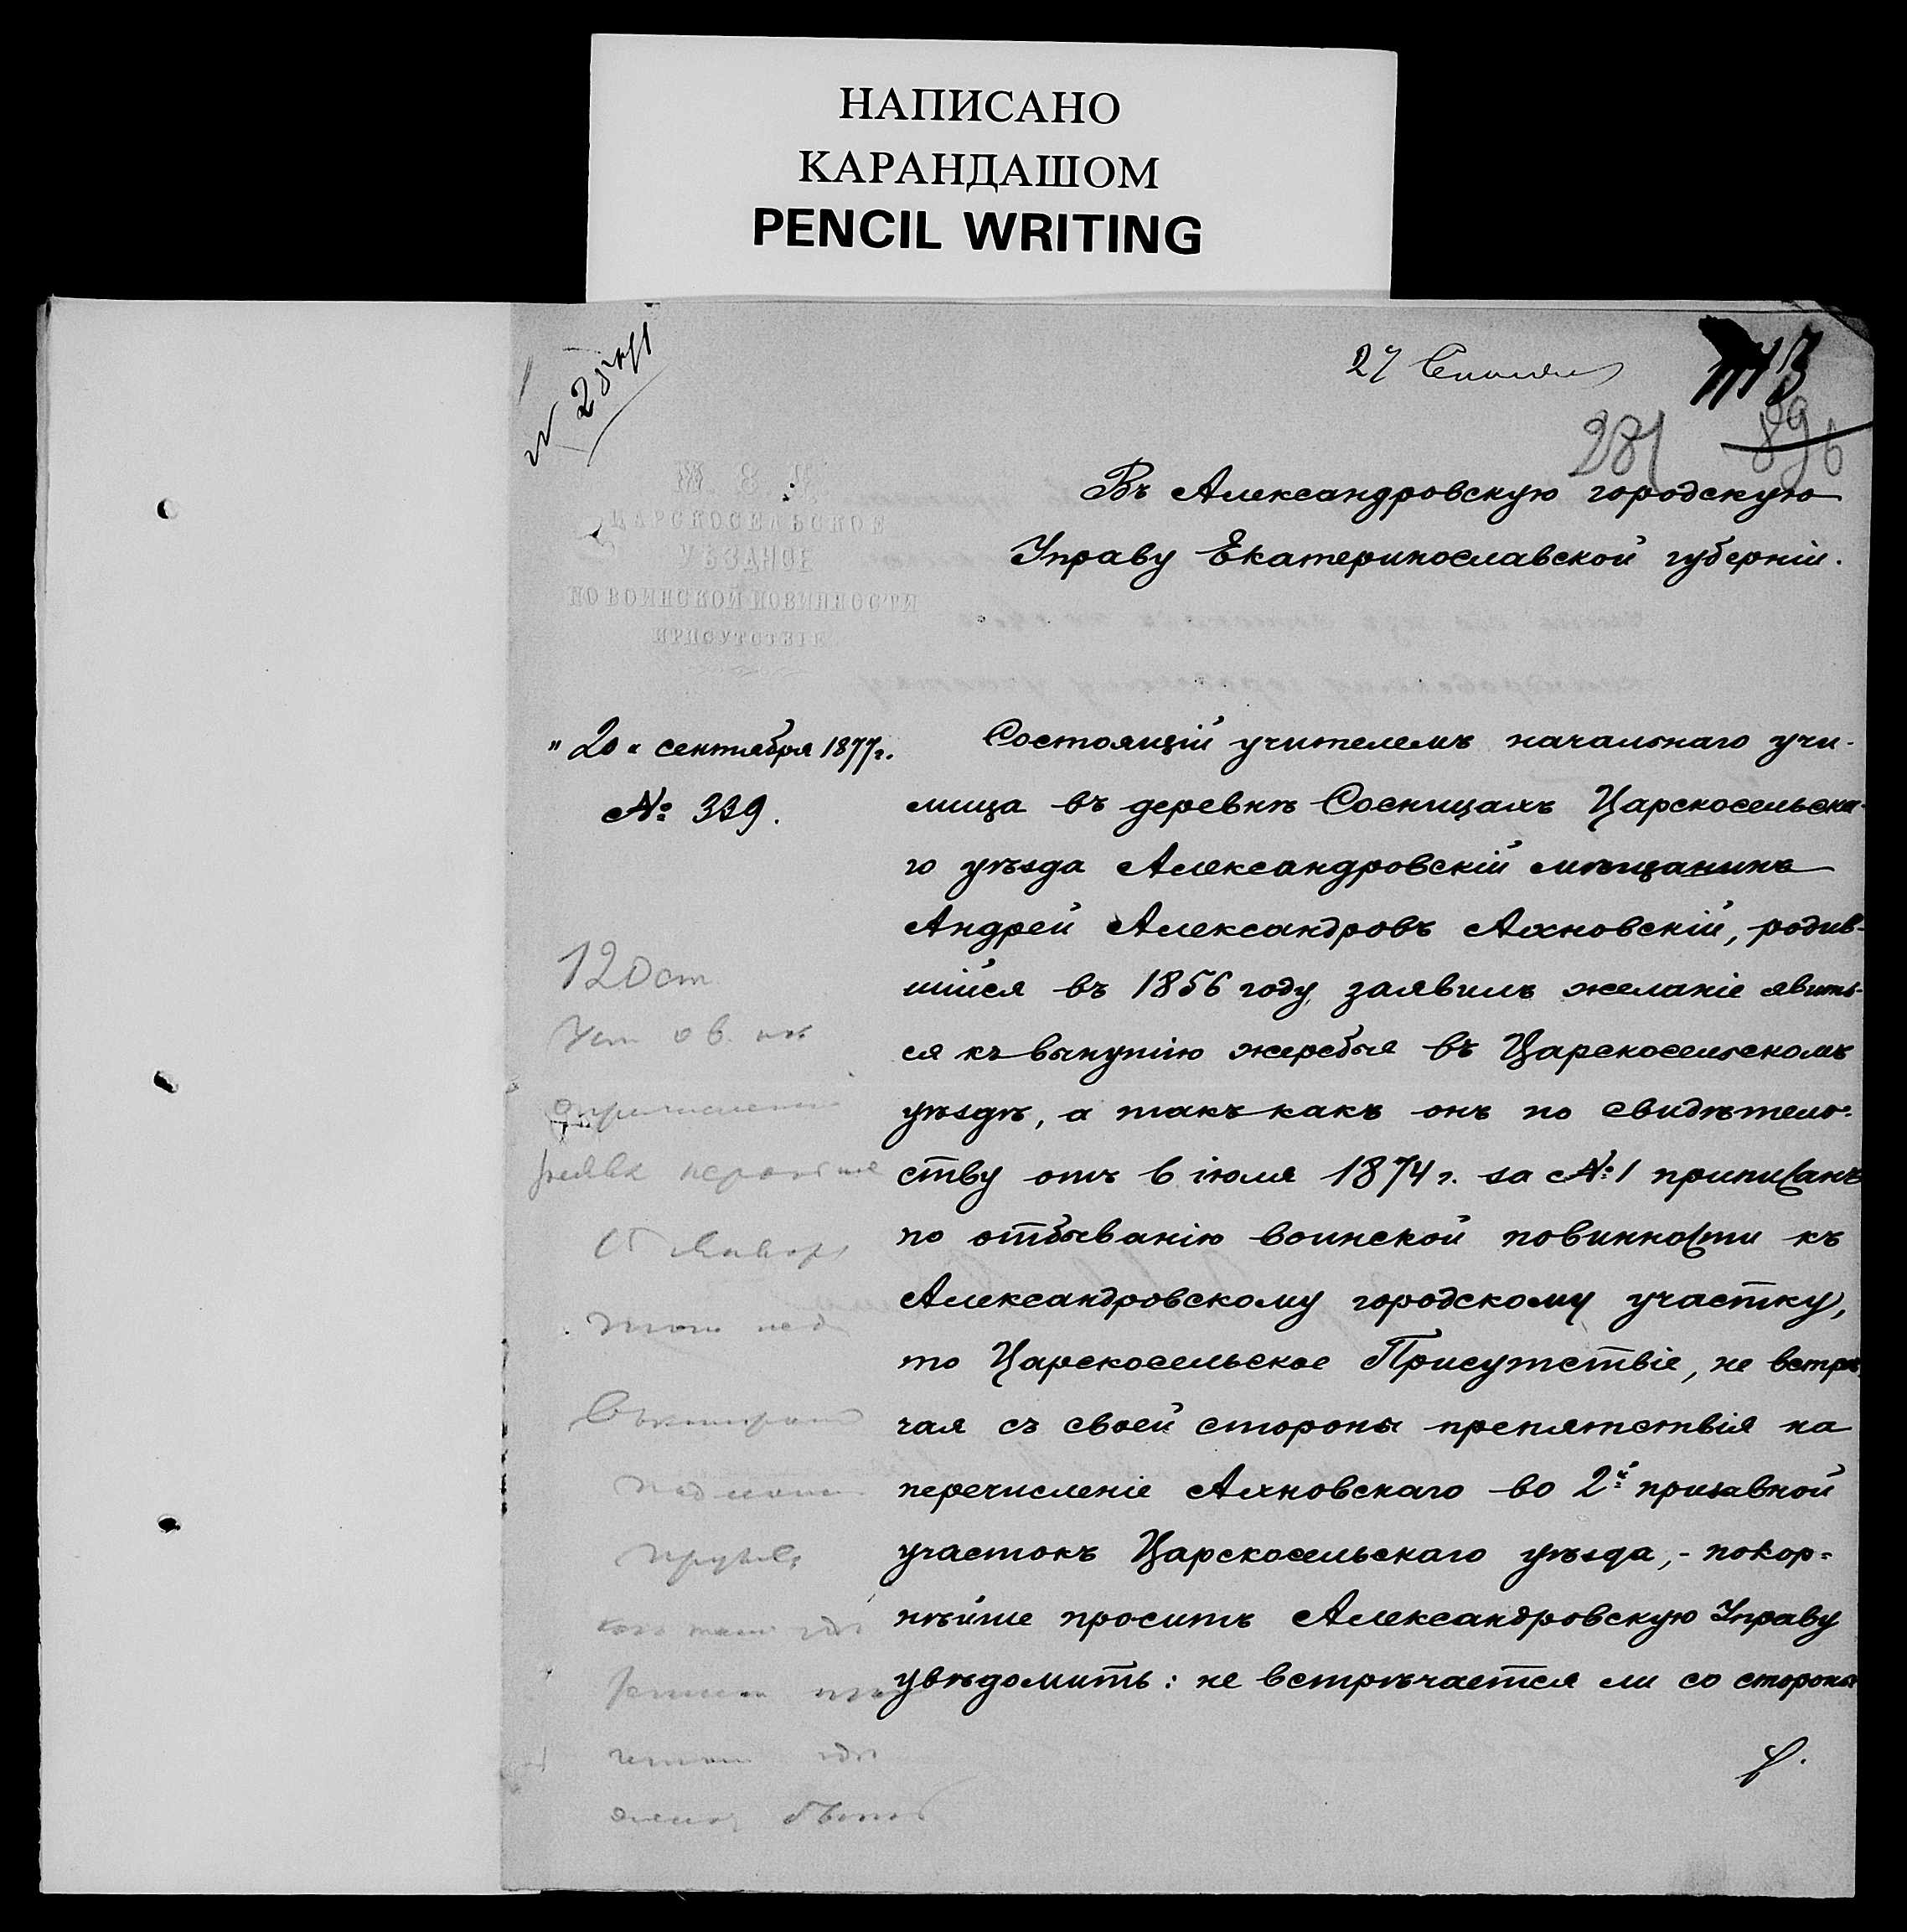 НАПИСАНО
КАРАНДАШОМ
PENCIL WRITING
27
281
896
М. В. Д.
ЦАРСКОСЕЛЬСКОЕ
УѢЗДНОЕ
ПО ВОИНСКОЙ ПОВИННОСТИ
ПРИСУТСТВІЕ
Въ Александровскую городскую
Управу Екатеринославской губерніи.
„20“ сентября 1877 г.
№ 339.
Состоящій учителемъ начальнаго учи-
лища въ деревнѣ Сосницахъ Царскосельска-
го уѣзда Александровскій мѣщанинъ
Андрей Александровъ Ахновскій, родив-
шійся въ 1856 году, заявилъ желаніе явить-
ся къ вынутію жеребья въ Царскосельскомъ
уѣздѣ, а такъ какъ онъ по свидѣтель-
ству отъ 6 іюля 1874 г. за №1 приписанъ
по отбыванію воинской повинности къ
Александровскому городскому участку,
то Царскосельское Присутствіе, не встрѣ-
чая съ своей стороны препятствія на
перечисленіе Ахновскаго во 2й призывной
участокъ Царскосельскаго уѣзда, - покор-
нѣйше проситъ Александровскую Управу
увѣдомить: не встрѣчается ли со стороны
120 ст
Уст о в.